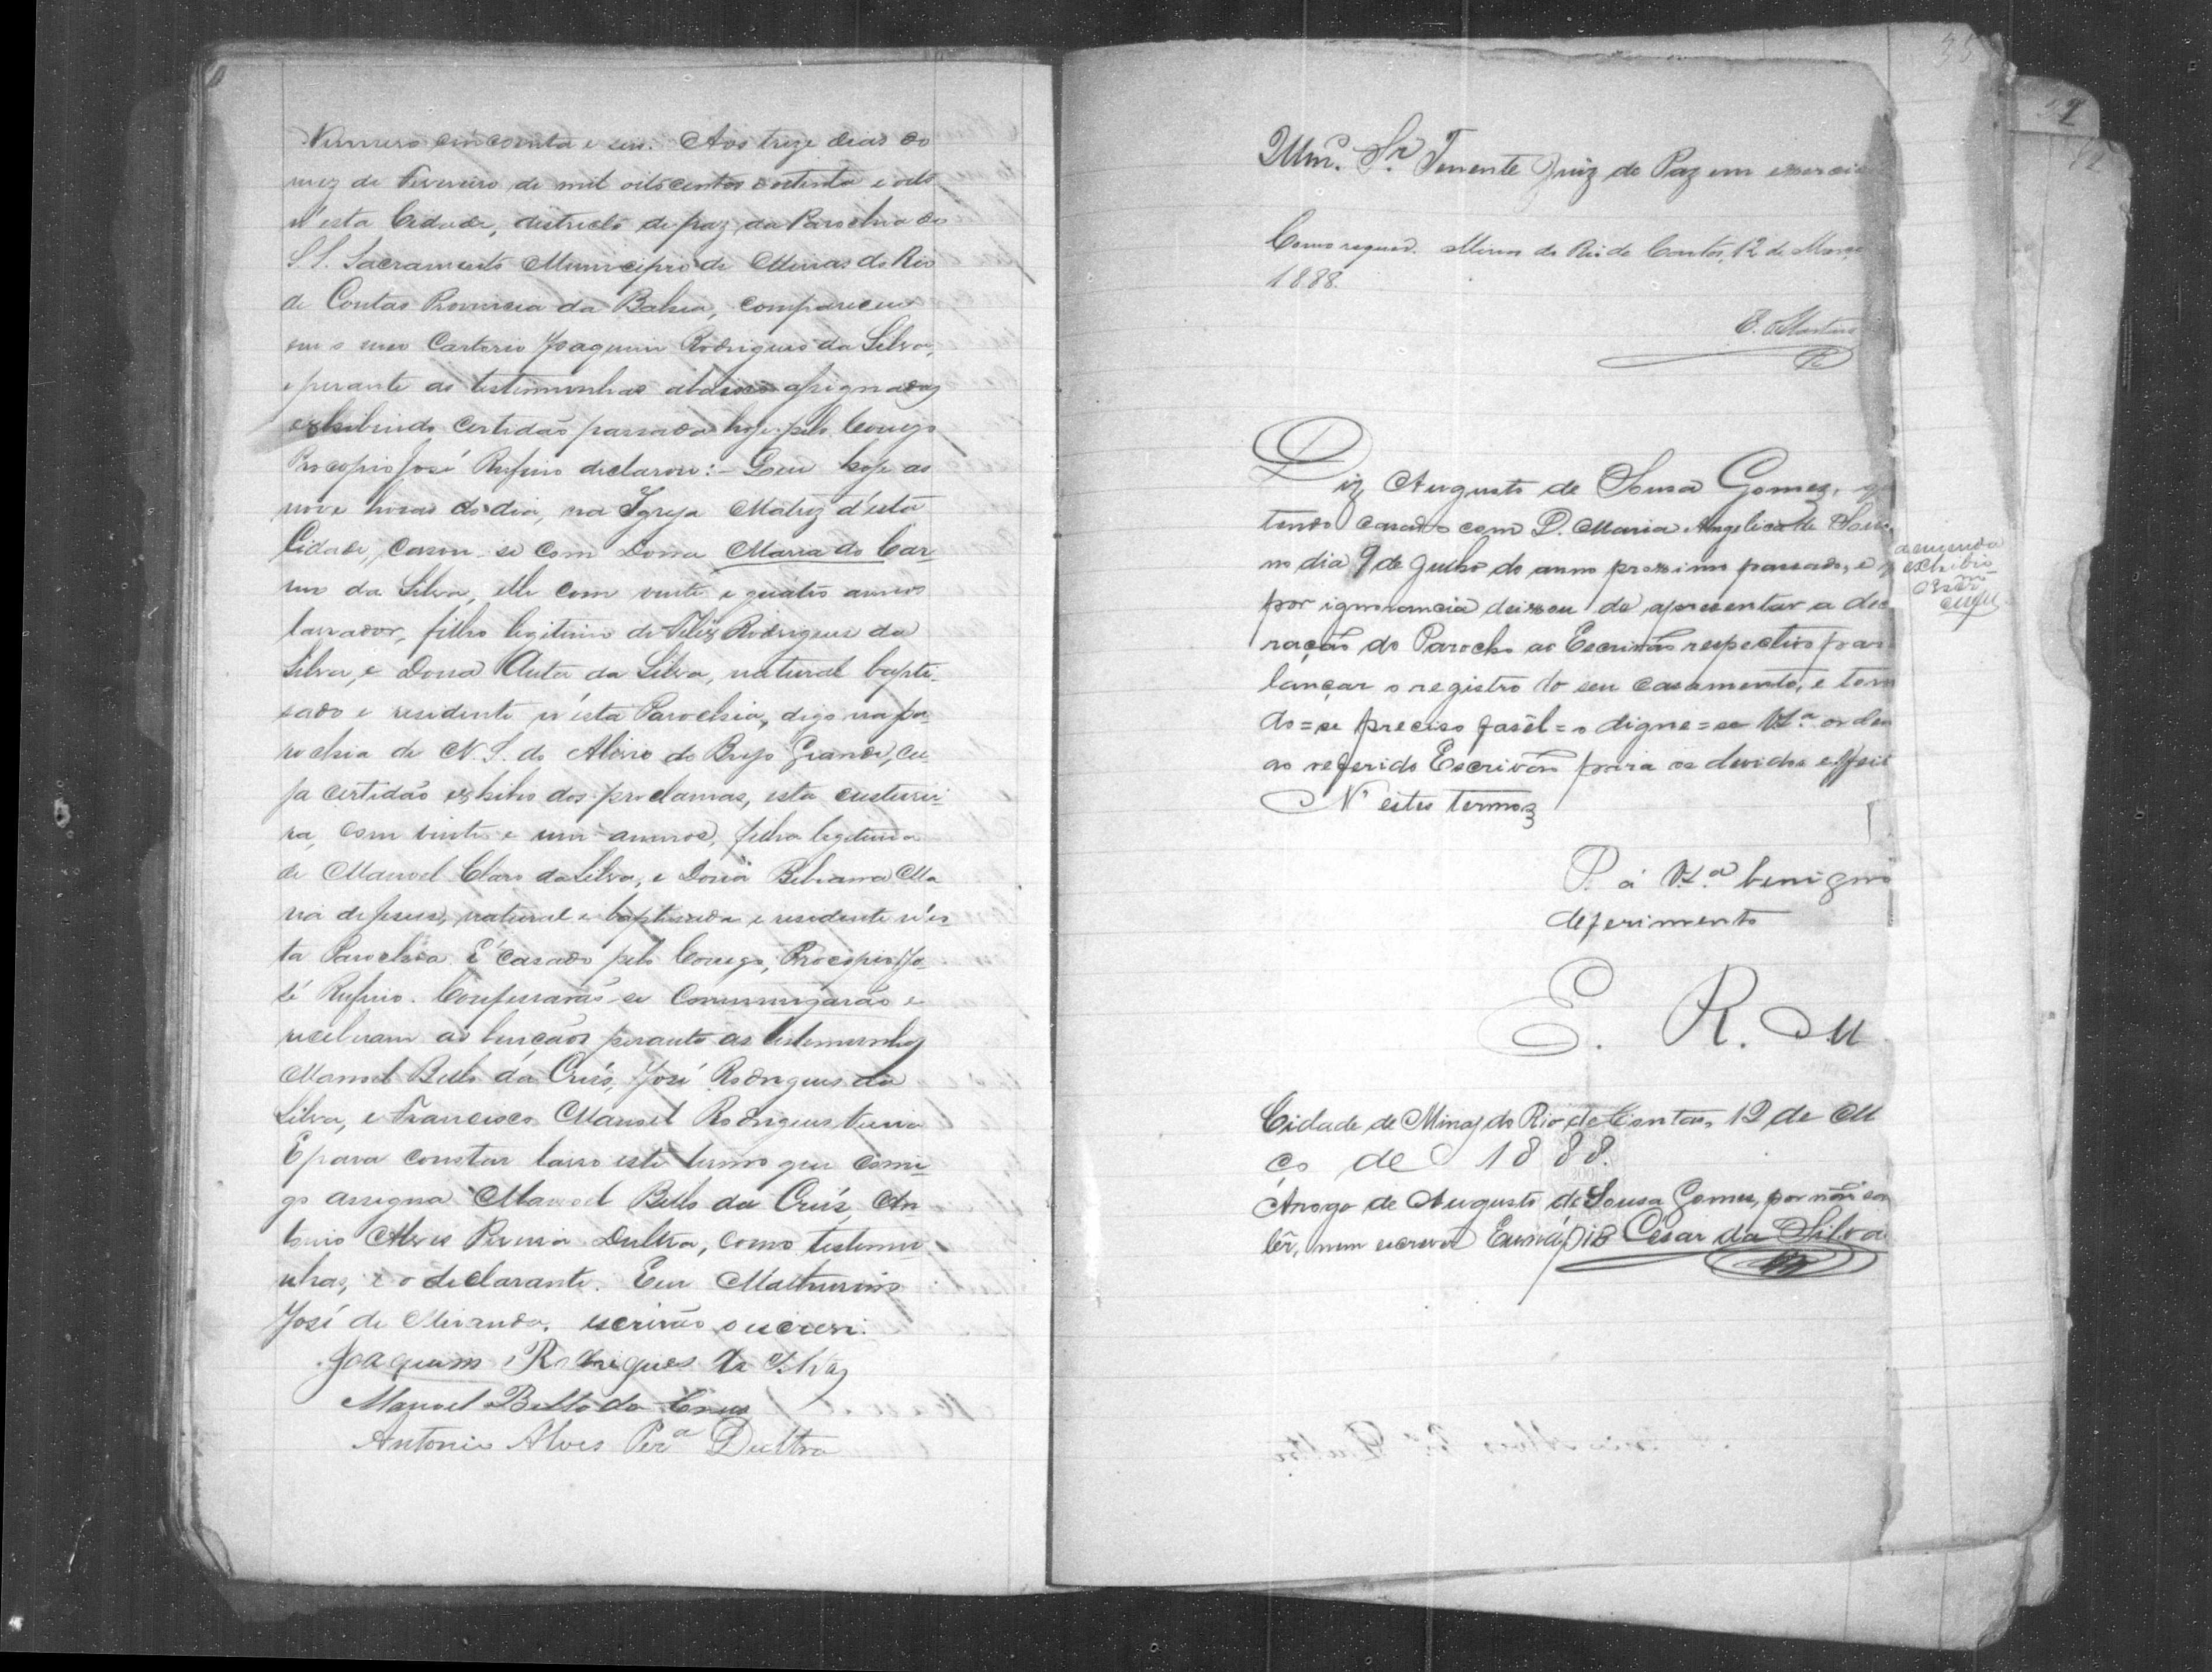 Numero cincoenta e seis. Aos treze dias do
mez de Fevereiro de mil oitocentos oitenta e oito
n'esta Cidade, districto de paz da Parochia do
S.S. Sacramento Municipio de Minas do Rio
de Contas Provincia da Bahia, compareceu
em o meo Cartorio Joaquim Rodrigues da Silva,
e perante as testemunhas abaixo assignadas
exhibindo certidão passada hoje pelo Conego
Procopio José Rufino declarou: - Que hoje as
nove horas do dia, na Igreja Matriz d'esta
Cidade, casou-se com Dona Maria do Car-
mo da Silva, elle com vinte e quatro annos
lavrador, filho legitimo de Felis Rodrigues da
Silva, e Dona Auta da Silva, natural bapti-
sado e residente n'esta Parochia, digo na pa-
rochia de N. S. do Alivio do Brejo Grande, cu-
ja certidão exhibio dos proclamas, esta custurei-
ra, com vinte e um annos, filha legitima
de Manoel Claro da Silva, e Dona Bibiana Ma
ria de Jesus, natural e baptisada e residente n'es-
ta Parochia. É casado pelo Conego, Procopio Jo-
sé Rufino. Confessarão-se Commungarão e
receberam as bençãos perante as testemunhas
Manoel Bello da Crús, José Rodrigues da
Silva, e Francisco Manoel Rodrigues
E para constar lavro este termo que comi-
go assigna Manoel Bello da Crús, An
tonio Alves Pereira Dultra, como testemu-
nhas, e o declarante. Eu Mathurino
José de Miranda, escrivão o escrevi.
Joaquim Rodrigues da Silva
Manoel Bello da Crus
Antonio Alves Perª Dultra
Illmº. Sr. Tenente Juiz de Paz em exercic
Como requer. Minas do Rio de Contas, 12 de Março
1888.
E. Martins
Diz Augusto de Sousa Gomes, q
tendo casado com D. Maria Angelica de Sous
no dia 9 de Julho do anno proximo passado, e
por ignorancia deixou de apresentar a dec
ração do Parocho ao Escrivão respectivo para
lançar o registro do seu casamento, e torn
do=se preciso fasêl=o digne=se V.Sª orden
ao referido Escrivão para os devidos effeit
N'estes termos
P. á V.Sª benigno
deferimento
E. R. M
Cidade de Minas do Rio de Contas, 12 de M
ço de 1888.
Arogo de Augusto de Sousa Gomes, por não sa
lêr, nem escrever Eunápio César da Silva
exhibio